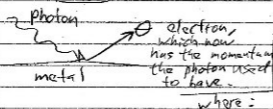 photon
electron,
which now
has the momentum
the photon used
to have.
metal
where: